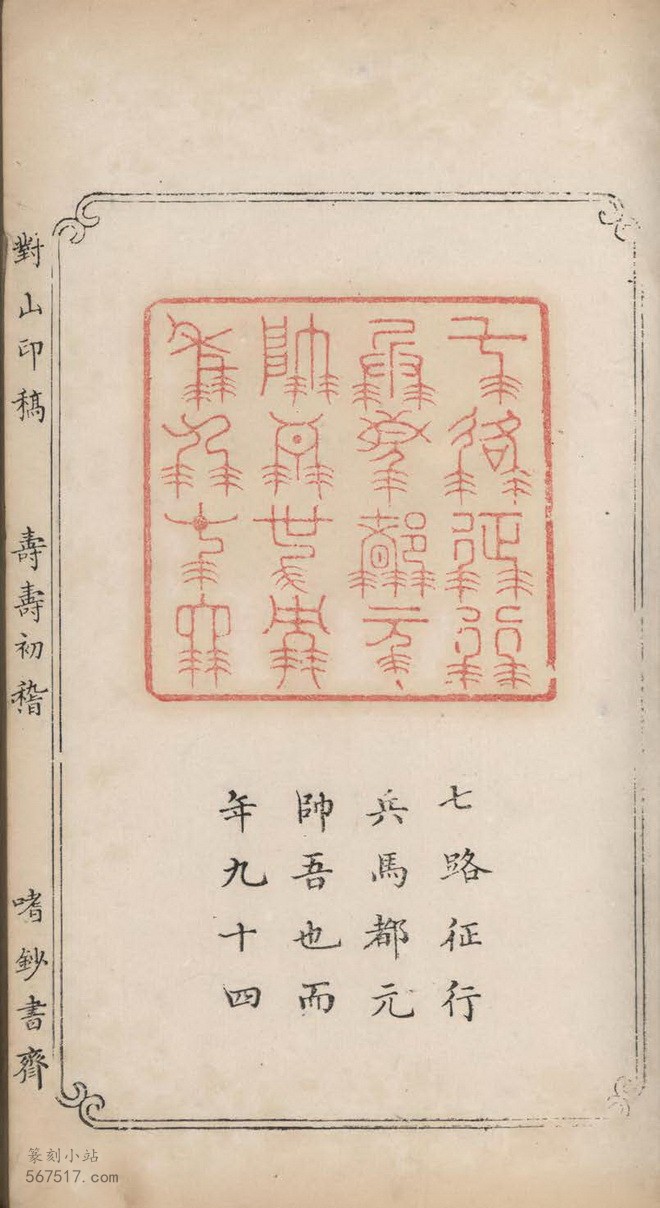 七路征行
兵馬都元
帥吾也而
年九十四
對山印稿 壽壽初稽 嗜鈔書齋
篆刻小站
567517.com